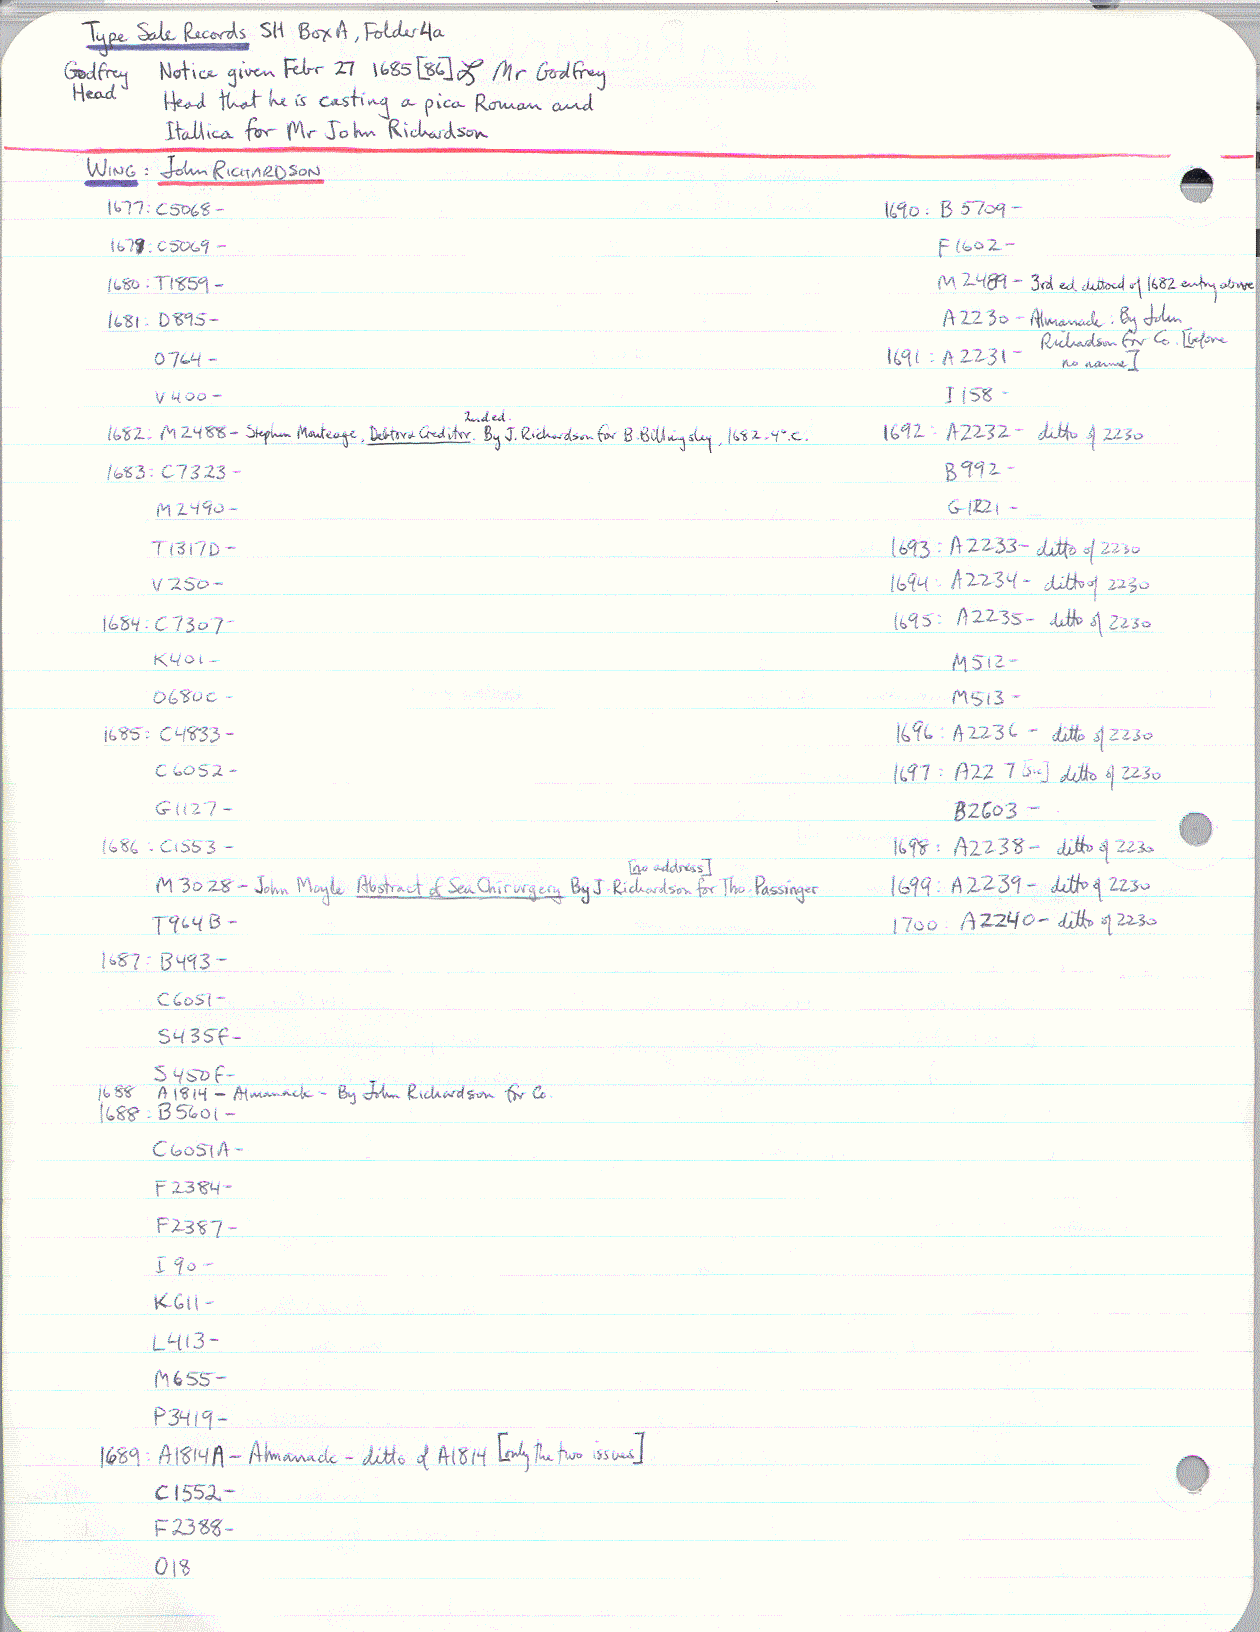 Type Sale Records SH Box A, Folder 4a
Godfrey Head
Notice given Febr 27 1685 [86] of Mr Godfrey
Head that he is casting a pica Roman and
Itallica for Mr John Richardson
WING: John RICHARDSON
1677: C5068-
1679: C5069-
1680: T1859-
1681: D895-
O764-
V400-
2nd ed.
1682: M2488- Stephen Monteage, Debtor & Creditor. By J. Richardson for B. Billingsley, 1682. 4°. C.
1683: C7323-
M2490-
T1317D-
V250-
1684: C7307-
K401-
O680C-
1685: C4833-
C6052-
G1127-
1686: C1553-
[no address]
M3028- John Moyle Abstract of Sea Chirurgery By J. Richardson for Tho. Passinger
T964B-
1687: B493-
C6051-
S435F-
S450F-
1688 A1814- Almanack- By John Richardson for Co.
1688: B5601-
C6051A-
F2384-
F2387-
I90-
K611-
L413-
M655-
P3419-
1689: A1814A- Almanack- ditto of A1814 [only the two issues]
C1552-
F2388-
O18
1690: B5709-
F1602-
M2489- 3rd ed dittoed of 1682 entry above
A2230- Almanack. By John
Richardson for Co. [before
no name]
1691: A2231-
I158-
1692: A2232- ditto of 2230
B992-
G1221-
1693: A2233- ditto of 2230
1694: A2234- ditto of 2230
1695: A2235- ditto of 2230
M512-
M513-
1696: A2236- ditto of 2230
1697: A22 7 [sic] ditto of 2230
B2603-
1698: A2238- ditto of 2230
1699: A2239- ditto of 2230
1700: A2240- ditto of 2230